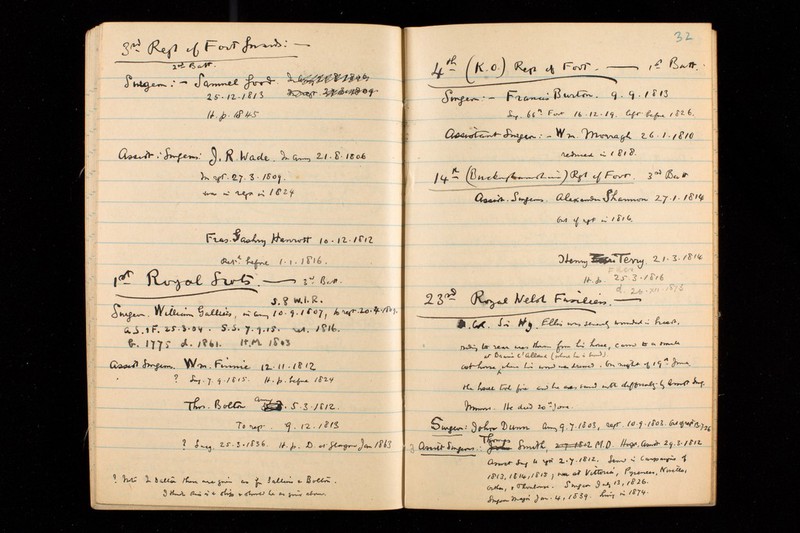 3rd Regt of Foot Guards: —
2nd Batt.
Surgeon: — Samuel Good
25.12.1813
H.p. 1845
Assist: Surgeon: J. R. Wade. In army 21.8.1806
In rgt. 27.3.1809.
was in regt in 1824
Fras. Gashry Hanrott 10.12.1812
Ret. before 1.1.1816.
1st Royal Scots. — 3rd Batt.
S.8 W.I.R.
Surgeon. William Galliers, in army 10.9.1807, to regt. 20.4.1809.
A.S. 1F. 25.3.04. S.S. 7.9.15. ret. 1816.
b. 1775 d. 1861. H.M. 1803
Assist Surgeon Wm. Finnie 12.11.1812
? Sug. 7.9.1815. H.p. before 1824
Thos. Bolton army 5.3.1812.
To regt. 9.12.1813
? Surg. 25.3.1836. H.p. D. at Glasgow Jan 1863
? Note In Dalton these are given as for Galliers & Bolton.
I think this is a slip & should be as given above
32
4th (K.O.) Regt of Foot. — 1st Batt.
Surgeon: — Francis Burton. 9.9.1813
Sug. 66th Foot 16.12.19. left before 1826.
Assistant Surgeon: — Wm Morragh 26.1.1810
reduced in 1818.
14th (Buckinghamshire) Rgt of Foot. 3rd Batt
Assist. Surgeon. Alexander Shannon 27.1.1814
out of rgt in 1816.
Henry Terry. 21.3.1814
H.p. 25 3.1816
d. 20.xii.1873
23rd Royal Welch Fusiliers. —
Col. Sir Hy. Ellis was severely wounded in breast,
riding to rear was thrown from his horse, carried to a small
at Braine L'Alleud (where he died)
out house, where his wound was dressed. On night of 19th June
the house took fire and he was saved with difficulty by Assist Surg.
Munro. He died 20th June.
Surgeon: John Dunn army 9.7.1803, regt. 10.9.1803.
Assist Surgeons: Thomas Smith, M.D. Hosp. Assist 29.2.1812
Assist Surg to rgt 2.7.1812. Served in Campaigns of
1813, 1814, 1815; was at Vittoria, Pyrenees, Nivelle,
Orthes, & Thoulouse. Surgeon July 13, 1826.
Surgeon Major Jan. 4, 1839. living in 1874.